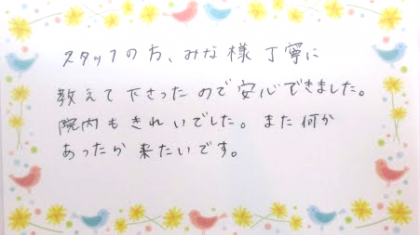 スタッフの方、みな様丁寧に
教えて下さったので安心できました。
院内もきれいでした。また何か
あったら来たいです。